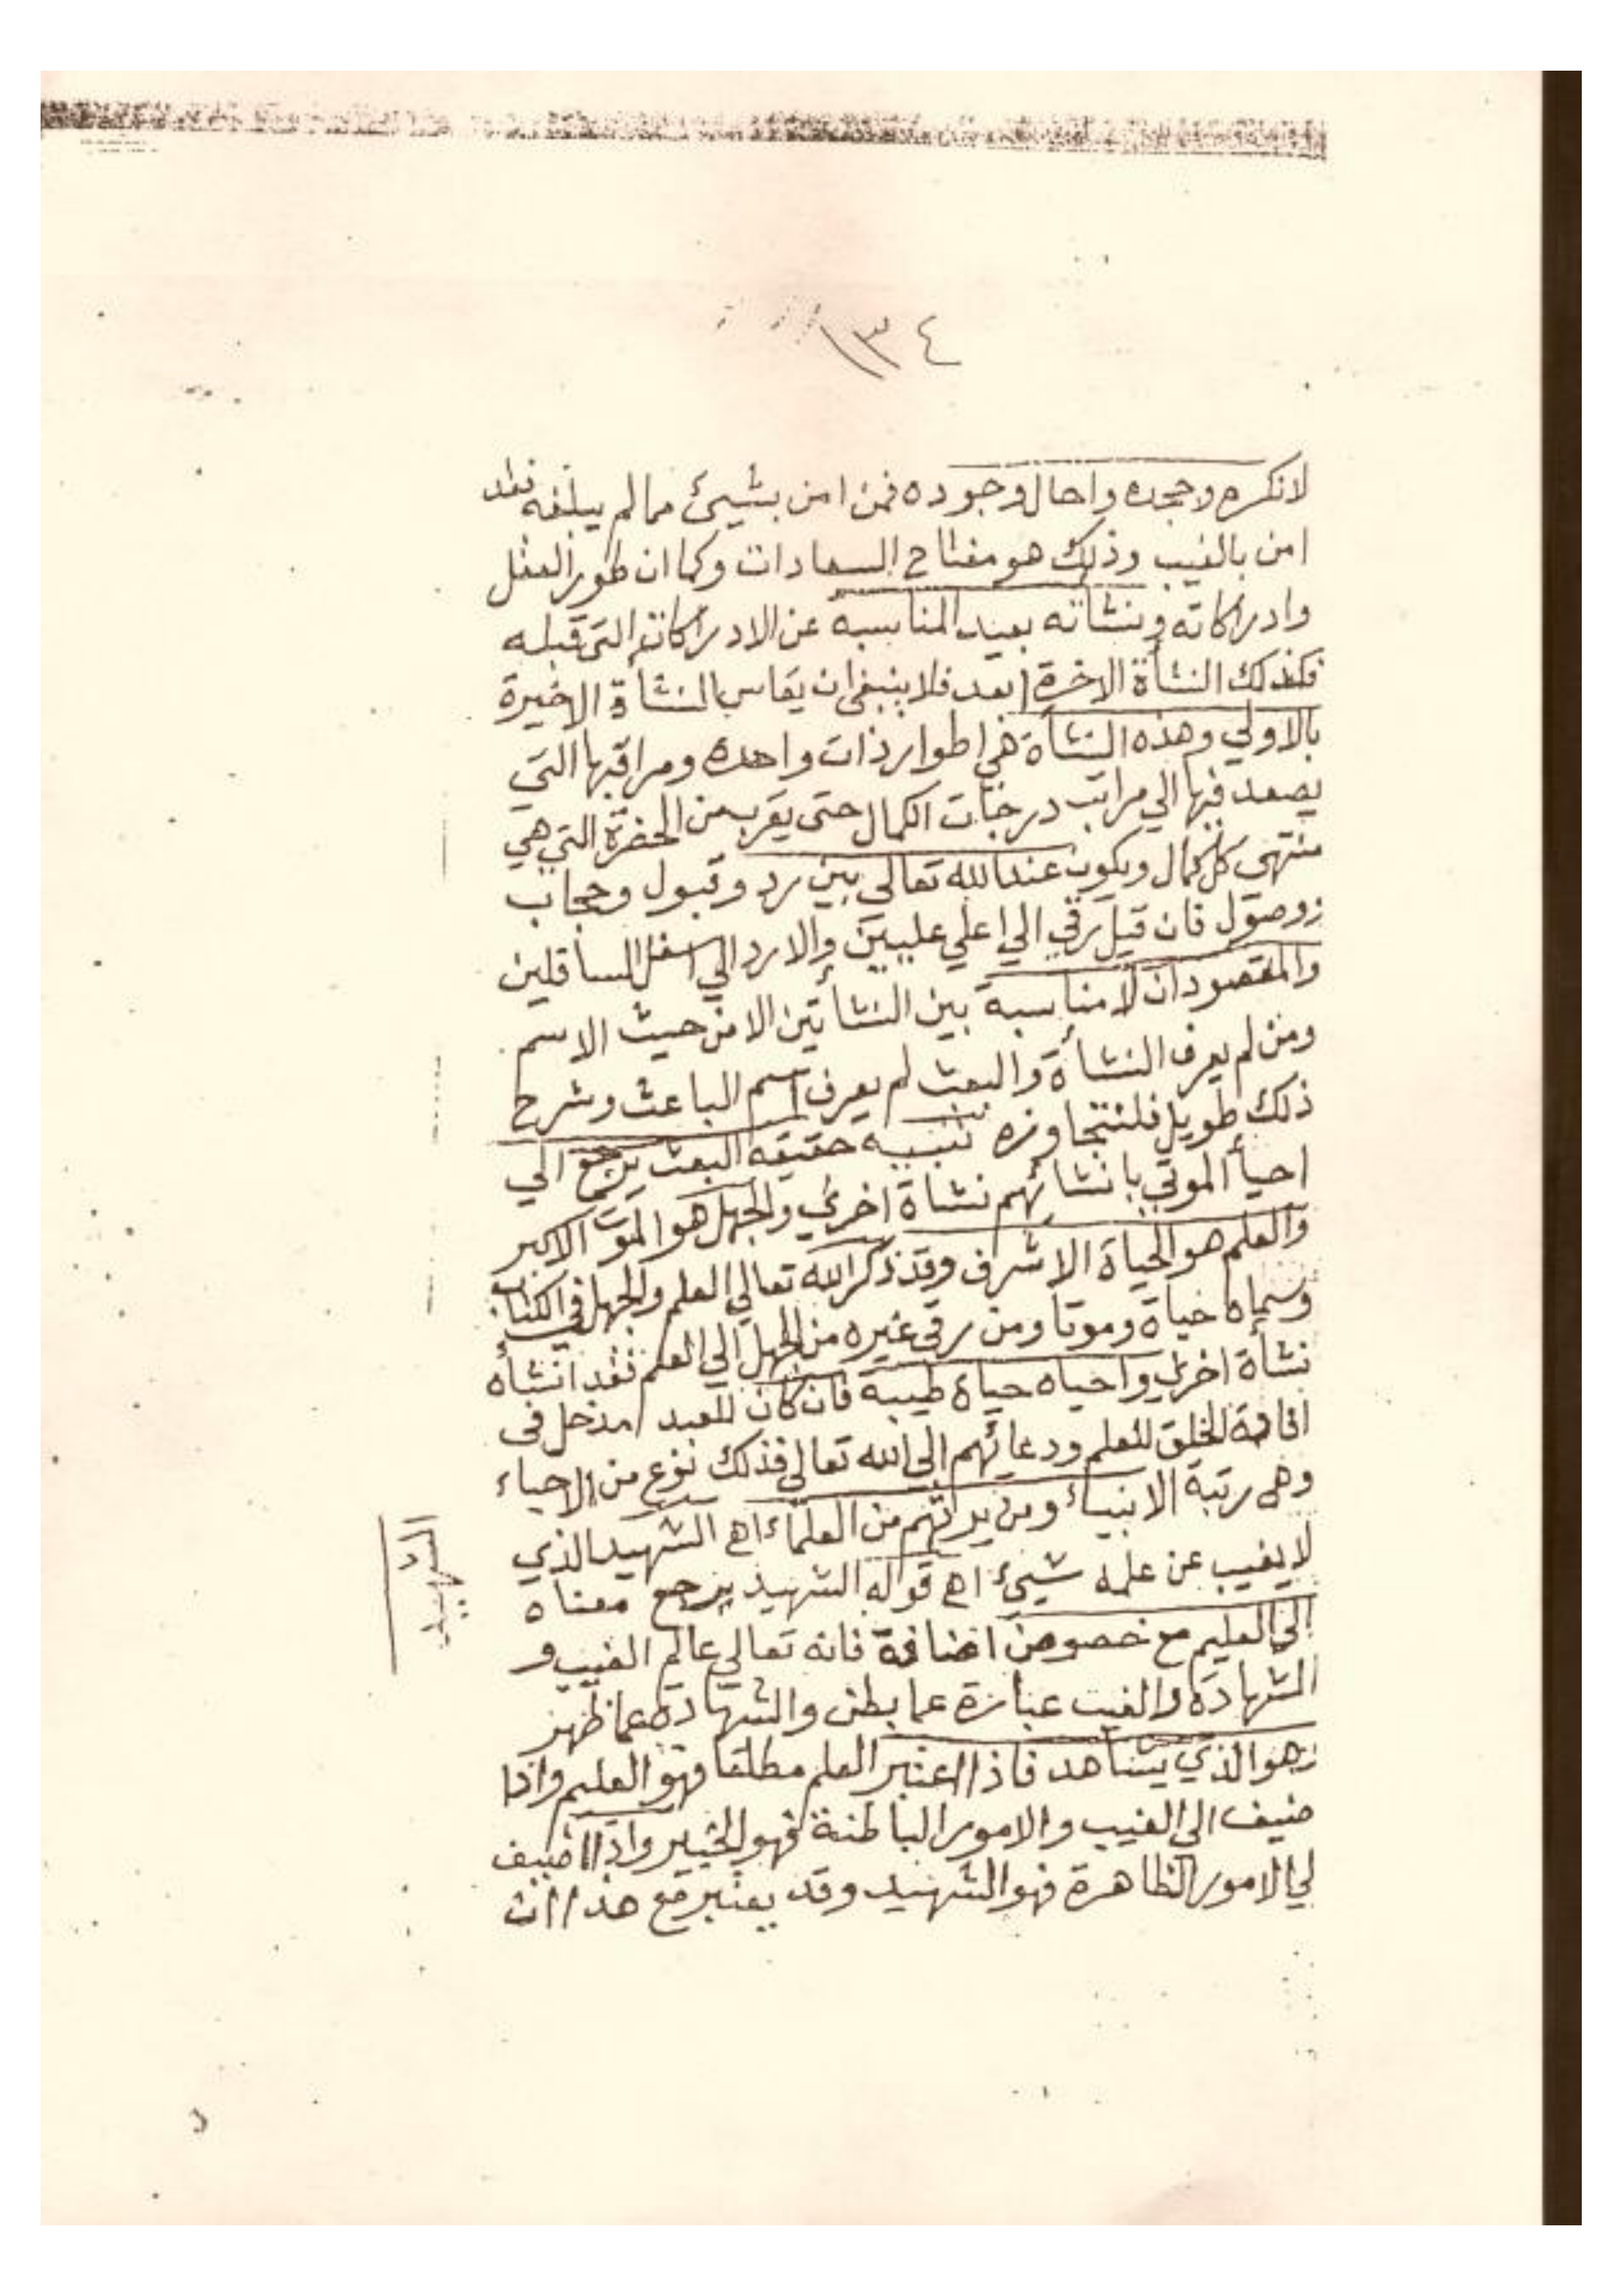 ١٣٤
لانكره وجحده واحال وجوده فمن امن بشيئ مما لم يبلغه فقد
امن بالغيب وذلك هو مفتاح السعادات وكما ان طور العقل
وادراكاته ونشاته بعيد المناسبه عن الادراكات التي قبله
فكذلك النشأة الاخرة ابعد فلا ينبغي ان يقاس النشأة الاخيرة
بالاولي وهذه النشأة هي اطوار ذات واحدة ومراقيها التي
يصعد فيها الي مراتب درجات الكمال حتى يقرب من الحضرة التي هي
منتهى كل كمال ويكون عند الله تعالى بين رد وقبول وحجاب
ووصول فان قبل رقي الي اعلي عليين والا رد الي اسفل السافلين
والمقصود ان لا مناسبة بين النشأتين الا من حيث الاسم
ومن لم يعرف النشأة والبعث لم يعرف اسم الباعث وشرح
ذلك طويل فلنتجاوزه تنبيه حقيقه البعث يرجع الي
احيأ الموتي بانشائهم نشاة اخري والجهل هو الموت الاكبر
والعلم هو الحياة الاشرف وقد ذكر الله تعالي العلم والجهل في الكتاب
وسماه حياة وموتا ومن رقى غيره من الجهل الي العلم فقد انشأه
نشأة اخري واحياه حياة طيبه فان كان للعبد مدخل فى
افادة الخلق للعلم ودعائهم الي الله تعالي فذلك نوع من الاحياء
وهي رتبة الانبياء ومن يرثهم من العلماء اهـ الشهيد الذي
لا يغيب عن علمه شيئ اهـ قوله الشهيد يرجع معناه
الي العليم مع خصوص اضافة فانه تعالي عالم الغيب و
الشهادة والغيب عبارة عما بطن والشهادة عما ظهر
وهو الذي يشاهد فاذا اعتبر العلم مطلقا فهو العليم واذا
ضيف الي الغيب والامور الباطنة فهو الخبير واذا اضيف
لي الامور الظاهرة فهو الشهيد وقد يعتبر مع هذا ان
الشهيد